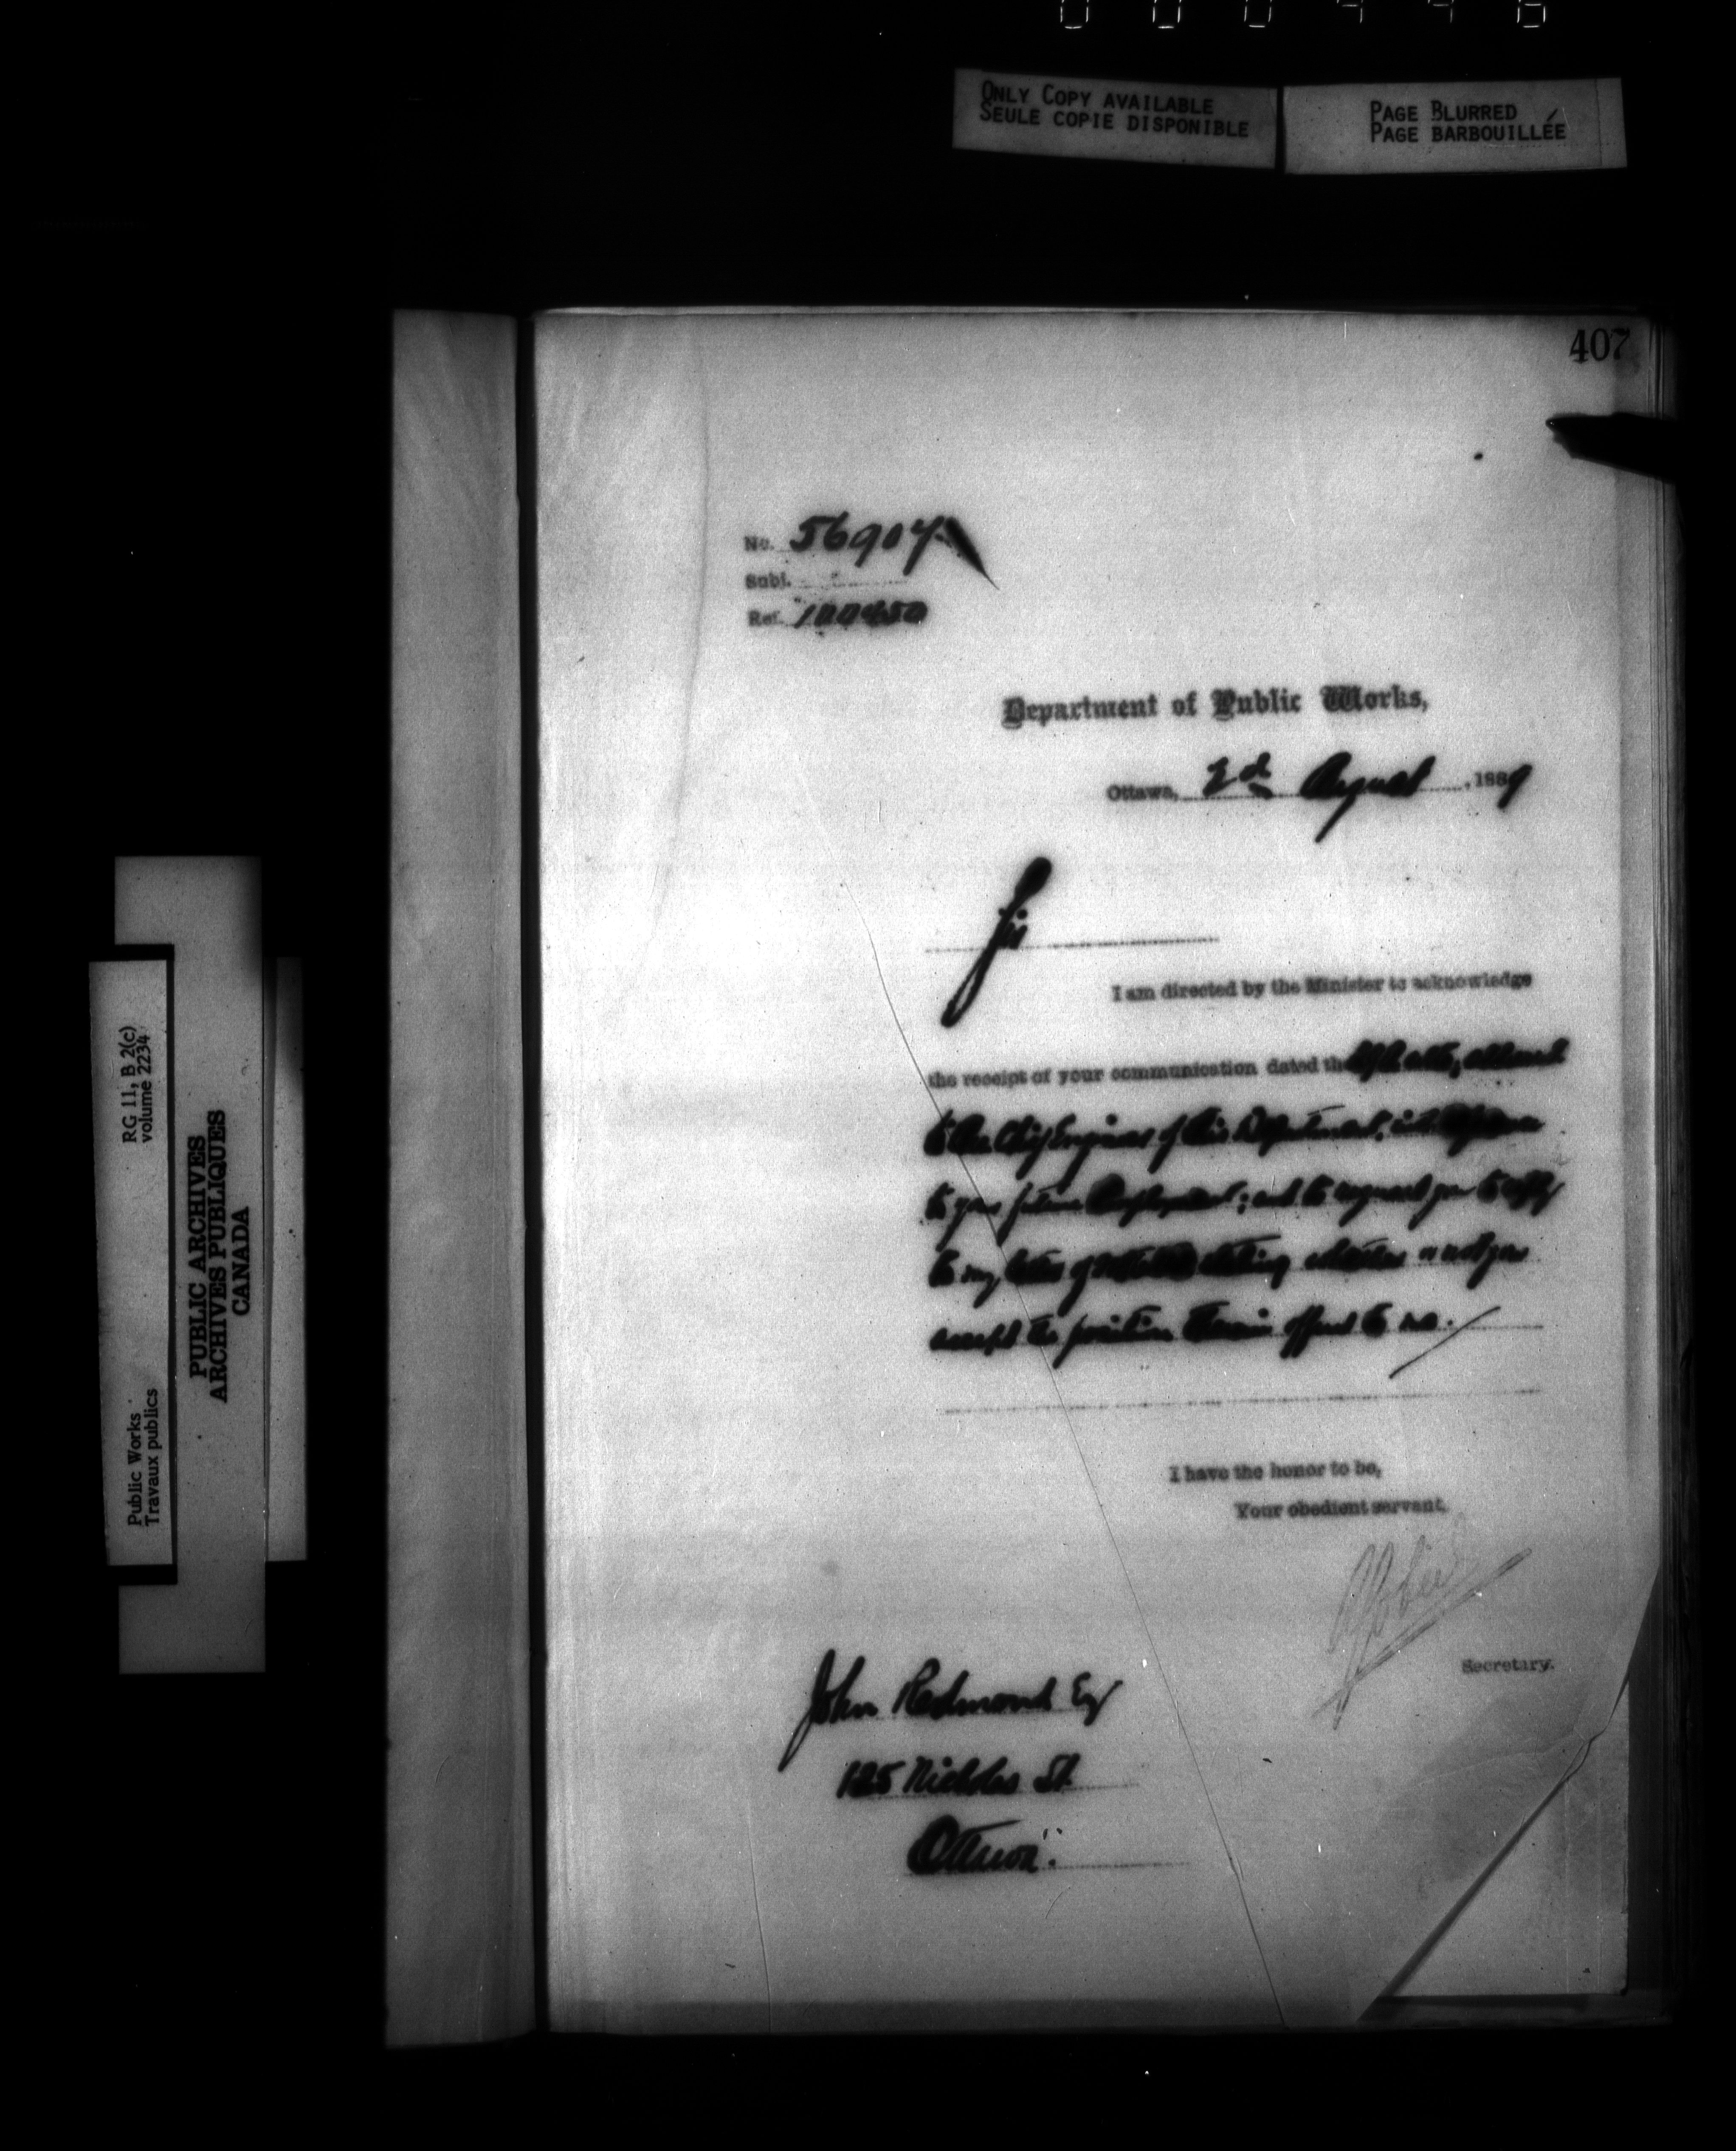 ONLY COPY AVAILABLE
SEULE COPIE DISPONIBLE
PAGE BLURRED
PAGE BARBOUILLÉE
407
No. 56907
Subj.
Ref. 100450
Department of Public Works,
Ottawa, 2d August, 1889
Sir
I am directed by the Minister to acknowledge
the receipt of your communication dated the
to the Chief Engineer of this Department, with reference
to your future Employment; and to request you to reply
to my letter of stating whether or not you
accept the position therein offered to you.
I have the honor to be,
Your obedient servant,
Secretary.
John Redmond Esq
125 Nicholas St.
Ottawa.
RG 11, B 2(c)
volume 2234
Public Works
Travaux publics
PUBLIC ARCHIVES
ARCHIVES PUBLIQUES
CANADA